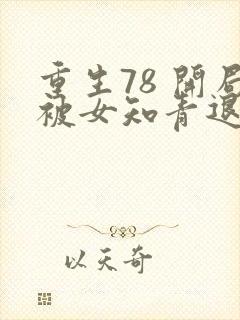 重生78 開局
被女知青退
以天奇